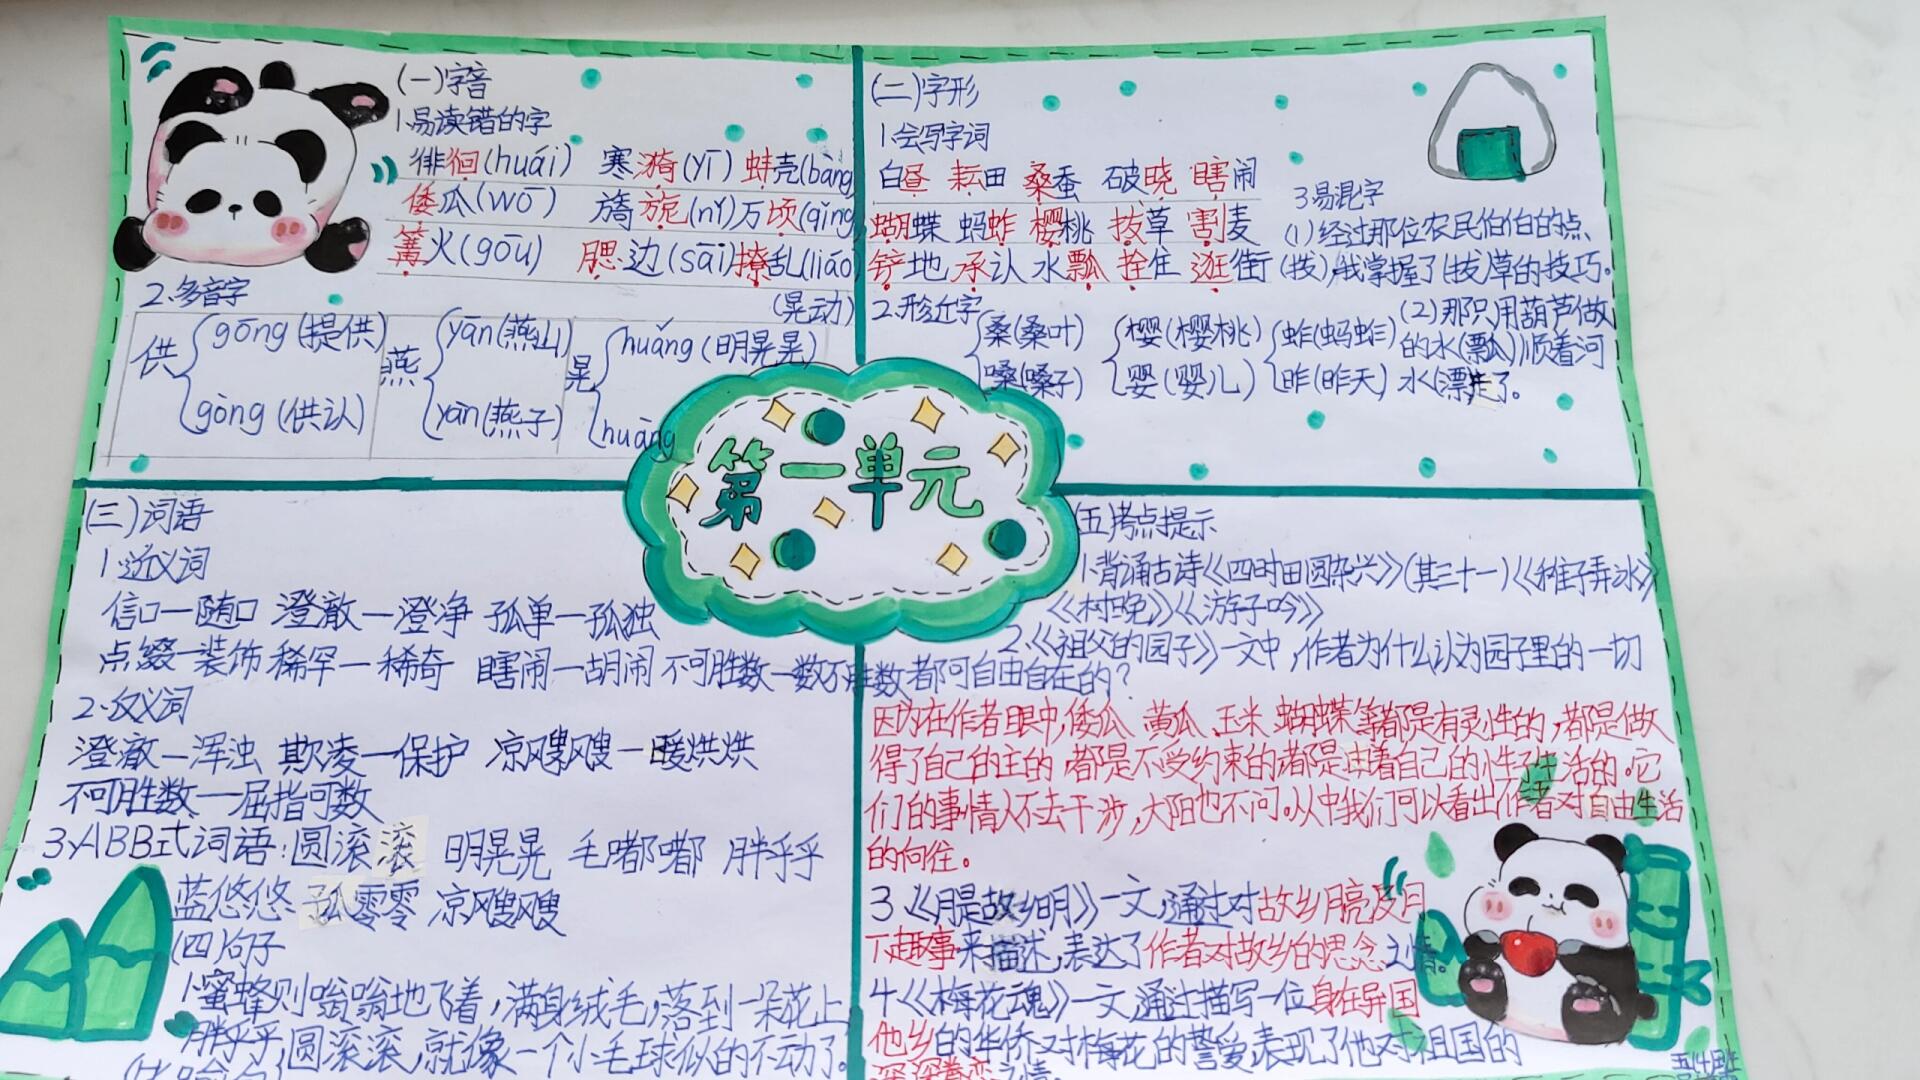 第一单元
(一)字音
1.易读错的字
徘徊(huái) 寒漪(yī) 蚌壳(bàng
倭瓜(wō) 旖旎(nǐ)万顷(qǐng
篝火(gōu) 腮边(sāi)撩乱(liáo)
2.多音字
供 gōng(提供) gòng(供认)
燕 yān(燕山) yàn(燕子)
晃 huǎng(明晃晃) huàng (晃动)
(二)字形
1.会写字词
白昼 耘田 桑蚕 破晓 瞎闹
蝴蝶 蚂蚱 樱桃 拔草 割麦
铲地 承认 水瓢 拴住 逛街
2.形近字
桑(桑叶) 樱(樱桃) 蚱(蚂蚱)
嗓(嗓子) 婴(婴儿) 昨(昨天)
3.易混字
(1)经过那位农民伯伯的点
(拨),我掌握了(拔)草的技巧。
(2)那只用葫芦做
的水(瓢)顺着河
水(漂)走了。
(三)词语
1.近义词
信口一随口 澄澈一澄净 孤单一孤独
点缀一装饰 稀罕一稀奇 瞎闹一胡闹 不可胜数一数不胜数
2.反义词
澄澈一浑浊 欺凌一保护 凉飕飕一暖烘烘
不可胜数一屈指可数
3.ABB式词语:圆滚滚 明晃晃 毛嘟嘟 胖乎乎
蓝悠悠 孤零零 凉飕飕
(四)句子
1.蜜蜂则嗡嗡地飞着,满身绒毛,落到一朵花上,
胖乎乎,圆滚滚,就像一个小毛球似的不动了。
(五)考点提示
1.背诵古诗《四时田圆杂兴》(其三十一)《稚子弄冰》
《村晚》《游子吟》
2.《祖父的园子》一文中,作者为什么认为园子里的一切
都可自由自在的?
因为在作者眼中,倭瓜 黄瓜 玉米 蝴蝶等都是有灵性的,都是做
得了自己的主的,都是不受约束的都是由着自己的性子生活的。它
们的事情人不去干涉,太阳也不问。从中我们可以看出作者对自由生活
的向往。
3.《月是故乡明》一文,通过对故乡月亮及月
下趣事来描述,表达了作者对故乡的思念之情。
4《梅花魂》一文,通过描写一位身在异国
他乡的华侨对梅花的挚爱,表现了他对祖国的